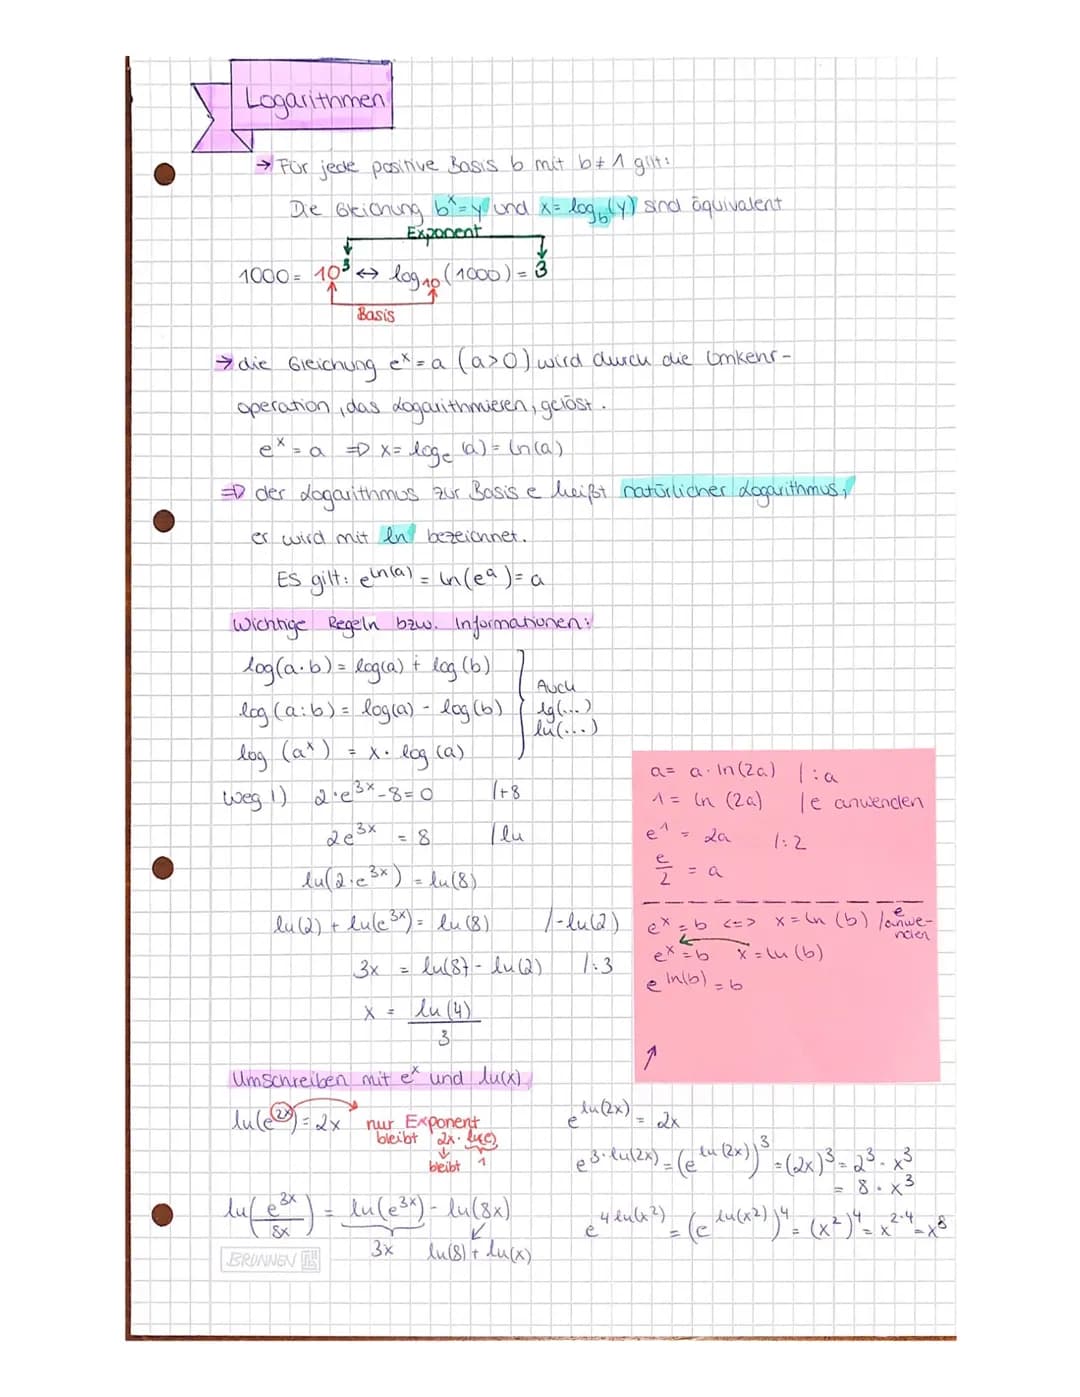 Logarithmen
→ Für jede positive Basis b mit b ≠ 1 gilt:
Die Gleichung b^x = y und x = log_b(y) sind äquivalent
Exponent
1000 = 10^3 ↔ log_10(1000) = 3
Basis
→ die Gleichung e^x = a (a>0) wird durch die Umkehr-
operation, das Logarithmieren, gelöst.
e^x = a ⇒ x = log_e(a) = ln(a)
⇒ der Logarithmus zur Basis e heißt natürlicher Logarithmus,
er wird mit ln bezeichnet.
ES gilt: e^ln(a) = ln(e^a) = a
Wichtige Regeln bzw. Informationen:
log(a·b) = log(a) + log(b)
log(a:b) = log(a) - log(b)
log(a^x) = x · log(a)
Auch
lg(...)
ln(...)
Weg 1) 2·e^3x - 8 = 0 /+8
2e^3x = 8 /ln
ln(2·e^3x) = ln(8)
ln(2) + ln(e^3x) = ln(8) /-ln(2)
3x = ln(8) - ln(2) /:3
x = ln(4)/3
a = a · ln(2a) |:a
1 = ln(2a) |e anwenden
e^1 = 2a |:2
e/2 = a
e^x = b <=> x = ln(b) /e anwe-
nden
e^x = b x = ln(b)
e^ln(b) = b
Umschreiben mit e^x und ln(x)
ln(e^2x) = 2x nur Exponent
bleibt 2x · ln(e)
bleibt 1
ln(e^3x/8x) = ln(e^3x) - ln(8x)
3x ln(8) + ln(x)
e^ln(2x) = 2x
e^3·ln(2x) = (e^ln(2x))^3 = (2x)^3 = 2^3 · x^3
= 8 · x^3
e^4ln(x^2) = (e^ln(x^2))^4 = (x^2)^4 = x^2·4 = x^8
BRUNNEN